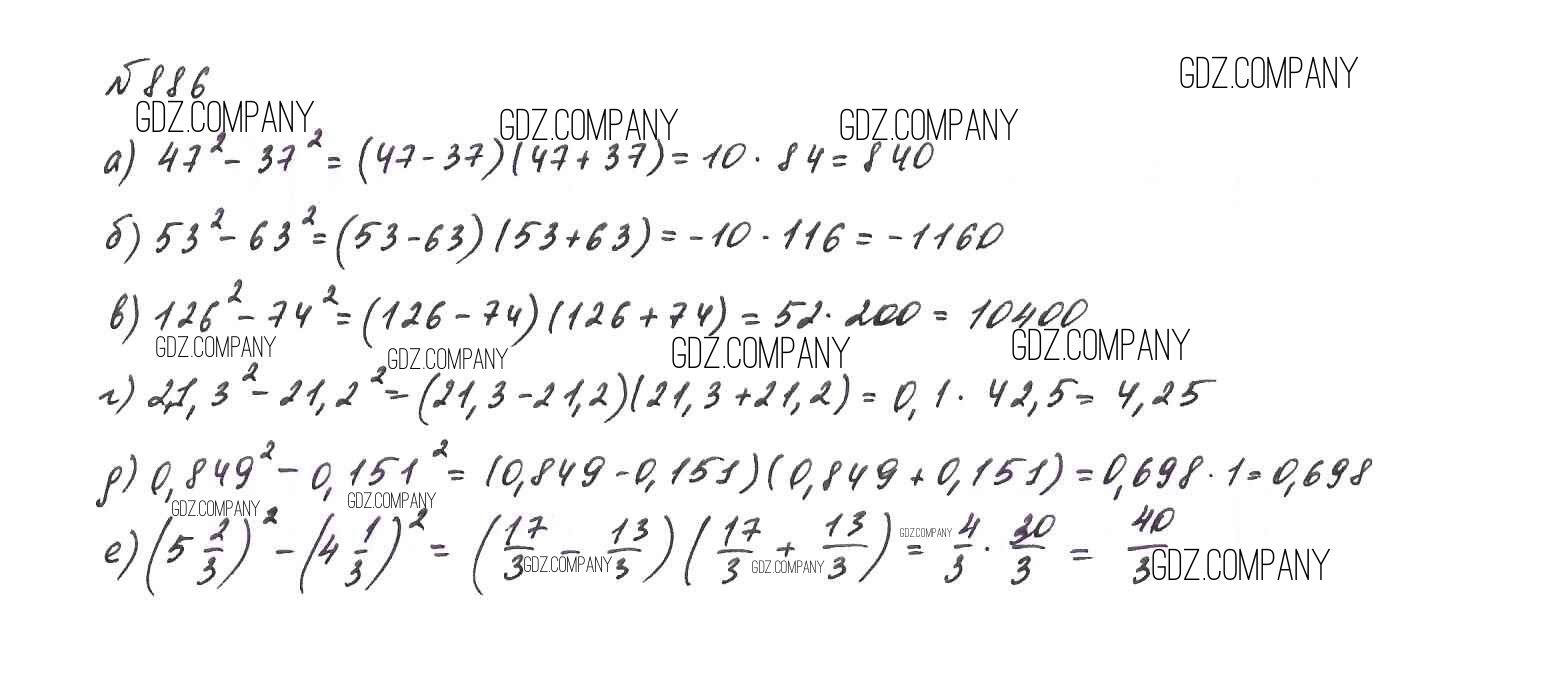 №886
GDZ.COMPANY
GDZ.COMPANY GDZ.COMPANY GDZ.COMPANY
а) 47² - 37² = (47 - 37)(47 + 37) = 10 · 84 = 840
б) 53² - 63² = (53 - 63)(53 + 63) = -10 · 116 = -1160
в) 126² - 74² = (126 - 74)(126 + 74) = 52 · 200 = 10400
GDZ.COMPANY GDZ.COMPANY GDZ.COMPANY GDZ.COMPANY
г) 21,3² - 21,2² = (21,3 - 21,2)(21,3 + 21,2) = 0,1 · 42,5 = 4,25
д) 0,849² - 0,151² = (0,849 - 0,151)(0,849 + 0,151) = 0,698 · 1 = 0,698
GDZ.COMPANY GDZ.COMPANY
е) (5 2/3)² - (4 1/3)² = (17/3 - 13/3)(17/3 + 13/3) = 4/3 · 30/3 = 40/3
GDZ.COMPANY GDZ.COMPANY GDZ.COMPANY GDZ.COMPANY